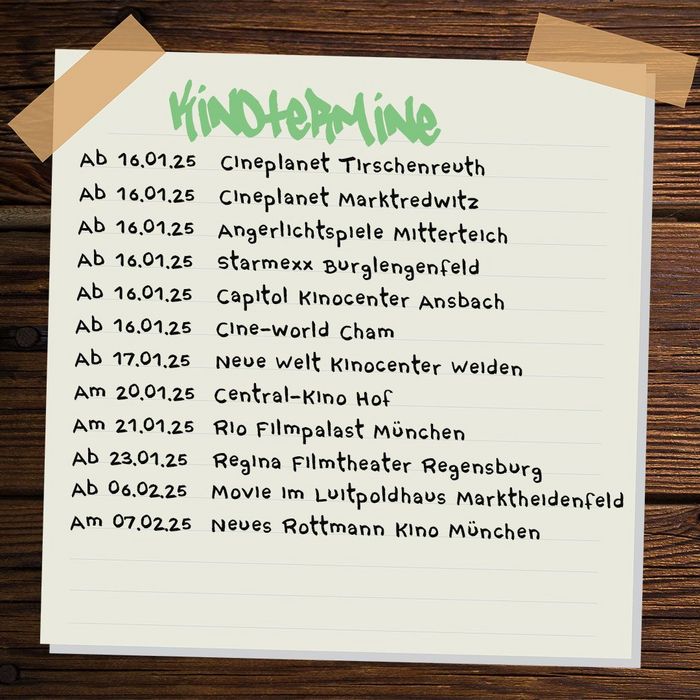 Kinotermine
Ab 16.01.25 Cineplanet Tirschenreuth
Ab 16.01.25 Cineplanet Marktredwitz
Ab 16.01.25 Angerlichtspiele Mitterteich
Ab 16.01.25 Starmexx Burglengenfeld
Ab 16.01.25 Capitol Kinocenter Ansbach
Ab 16.01.25 Cine-World Cham
Ab 17.01.25 Neue Welt Kinocenter Weiden
Am 20.01.25 Central-Kino Hof
Am 21.01.25 Rio Filmpalast München
Ab 23.01.25 Regina Filmtheater Regensburg
Ab 06.02.25 Movie im Luitpoldhaus Marktheidenfeld
Am 07.02.25 Neues Rottmann Kino München